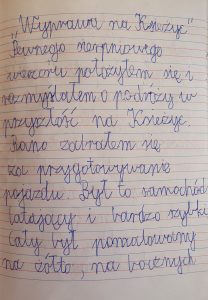 "Wyprawa na Księżyc"
Pewnego sierpniowego
wieczoru położyłem się i
rozmyślałem o podróży w
przyszłość na Księżyc.
Rano zabrałem się
za przygotowywanie
pojazdu. Był to samochód
latający i bardzo szybki
cały był pomalowany
na żółto, na bocznych